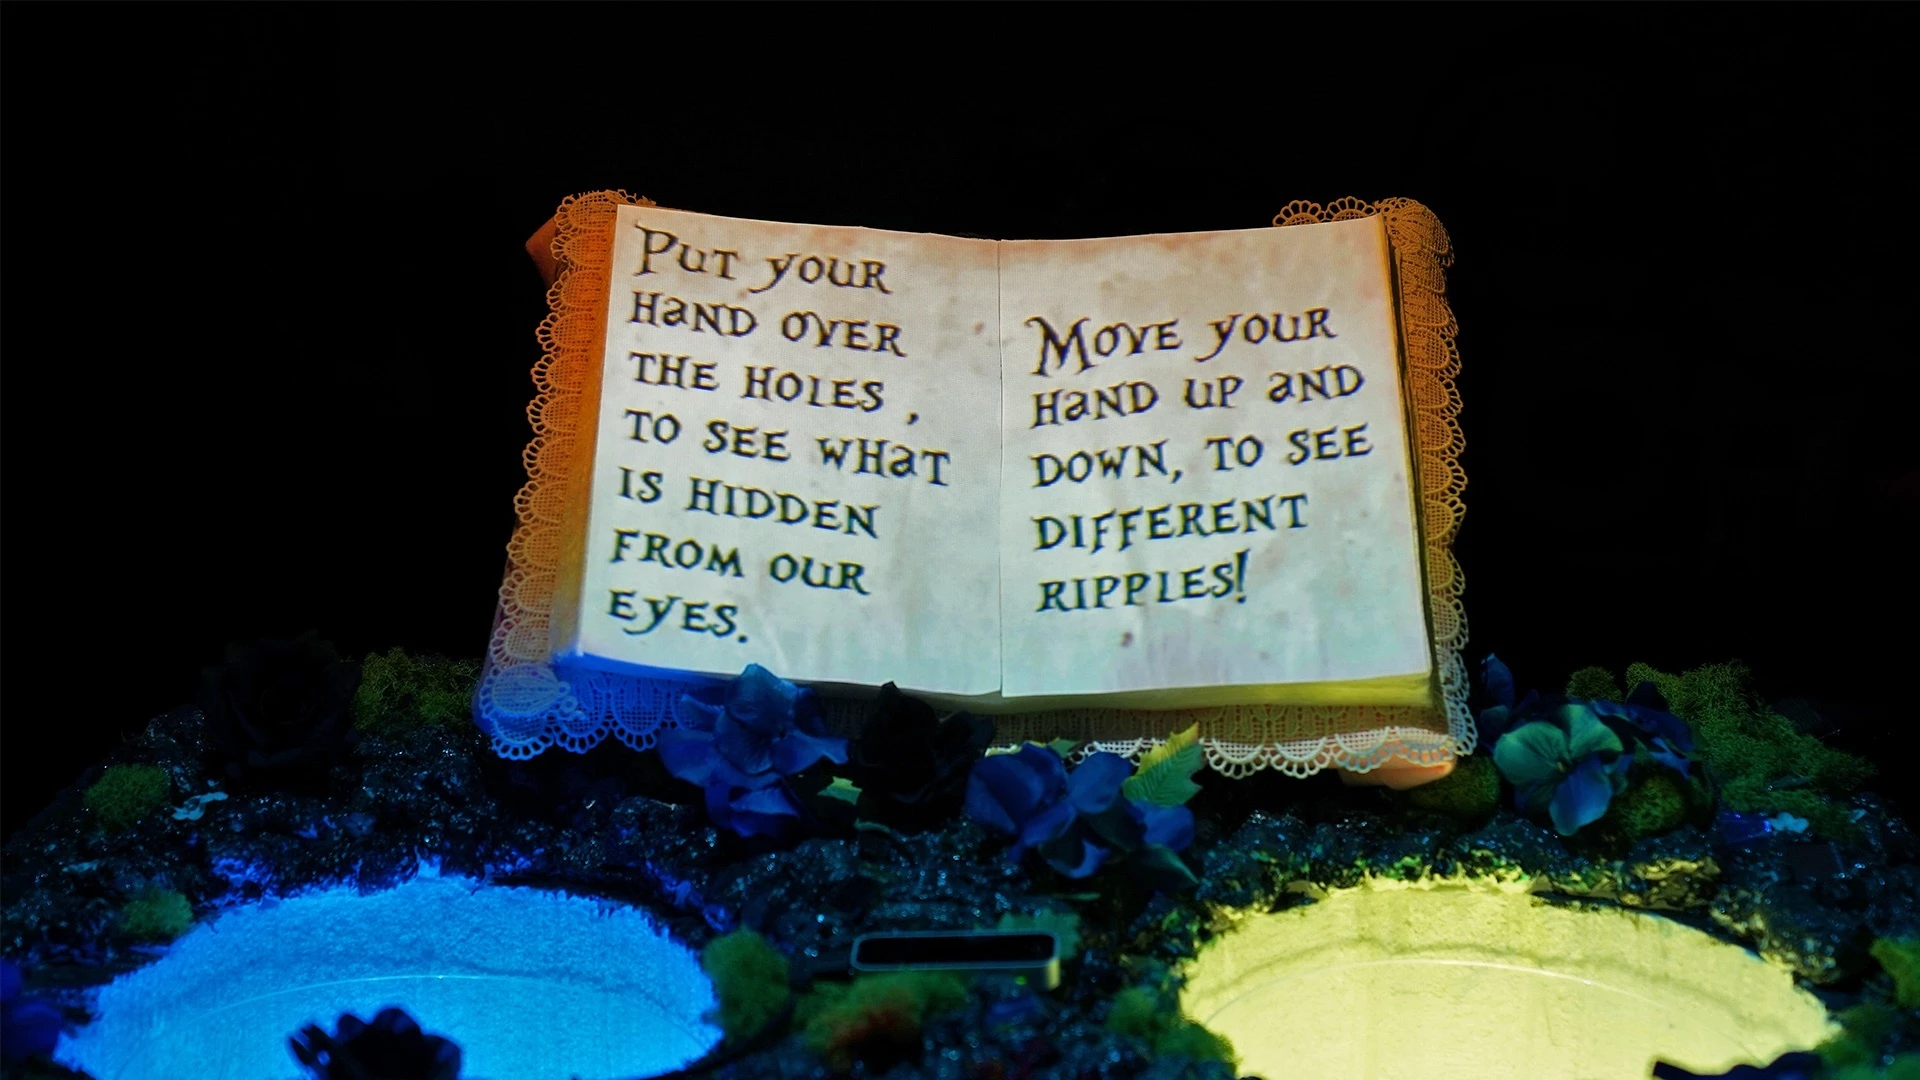 Put your
hand over
the holes ,
to see what
is hidden
from our
eyes.
Move your
hand up and
down, to see
different
ripples!